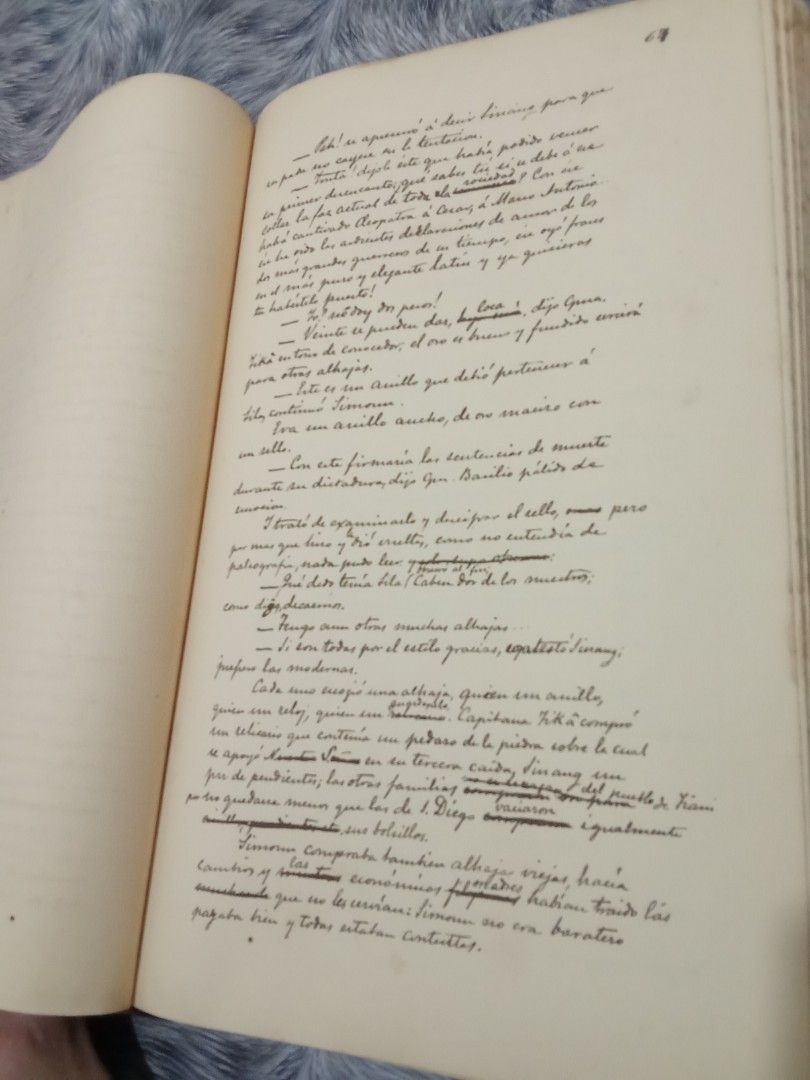 64
— Psh! se apresuró á decir Sinang para que
su padre no cayese en la tentacion.
— Tonta! díjole este que había podido vencer
su primer desencanto; qué sabes tú si se debe á ese
collar la faz actual de toda la sociedad? Con ese
habrá cautivado Cleopatra á Cesar, á Marco Antonio..
ese ha oido las ardientes declaraciones de amor de los
dos más grandes guerreros de su tiempo, ese oyó frases
en el más puro y elegante latin y ya quisieras
tu habértelo puesto!
— Yo? no doy dos pesos!
— Veinte se pueden dar, loca!, dijo Cpna.
Tikâ en tono de conocedor; el oro es bueno y fundido servirá
para otras alhajas.
— Este es un anillo que debió pertenecer á
Sila, continuó Simoun.
Era un anillo ancho, de oro macizo con
un sello.
— Con este firmaría las sentencias de muerte
durante su dictadura, dijo Cpn. Basilio pálido de
emocion.
I trató de examinarlo y descifrar el sello, pero
por mas que hizo y le dió vueltas, como no entendía de
paleografía, nada pudo leer y
— Qué dedo tenía Sila! Caben dos de los nuestros;
como digo, decaemos.
— Tengo aun otras muchas alhajas...
— Si son todas por el estilo gracias, contestó Sinang;
prefiero las modernas.
Cada uno escogió una alhaja, quien un anillo,
quien un reloj, quien un guardapelo. Capitana Tikâ compró
un relicario que contenía un pedazo de la piedra sobre la cual
se apoyó Nuestro Señor en su tercera caida, Sinang un
par de pendientes; las otras familias del pueblo de Tiani
por no quedarse menos que las de S. Diego vaciaron igualmente
sus bolsillos.
Simoun compraba tambien alhajas viejas, hacía
cambios y las económicas madres habían traido las
que no les servían: Simoun no era baratero
pagaba bien y todas estaban contentas.